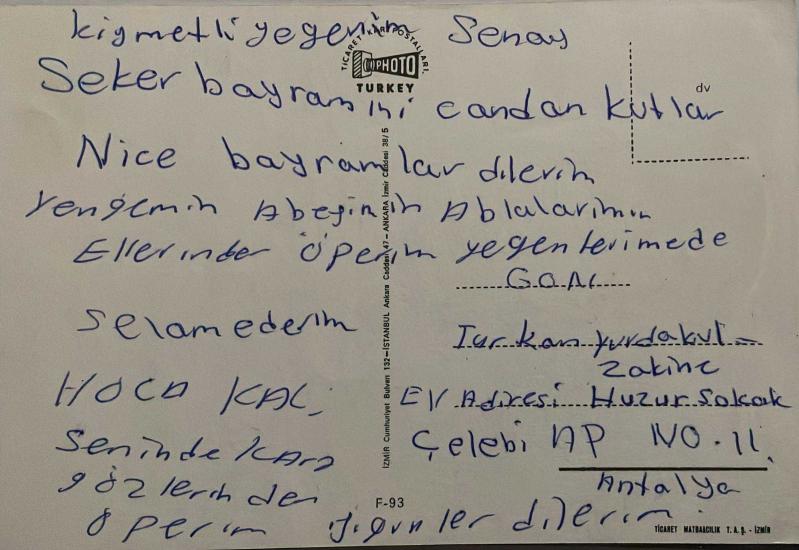 kiymetli yegenim Senay
TİCARET KARTPOSTALLARI.
PHOTO
TURKEY
Seker bayramini candan kutlar
dv
Nice bayramlar dilerim
yengemin Abegimin Ablalarimin
Ellerinden öperim yegenlerimede
selamederim
HOCA KAL,
seninde kara
gözlerinden
öperim iyigunler dilerim.
İZMİR Cumhuriyet Bulvarı 132—İSTANBUL Ankara Caddesi 47—ANKARA İzmir Caddesi 38/5
Turkan yurdakul-
Zakine
EV Adiresi Huzur Sokak
Çelebi AP NO.11.
Antalya
F-93
TİCARET MATBAACILIK T.A.Ş. - İZMİR